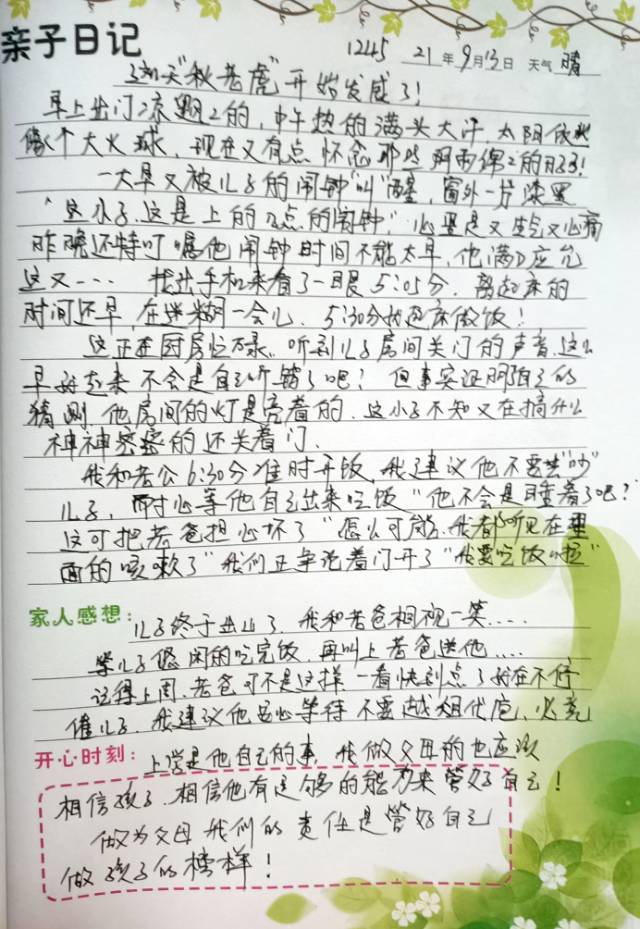 亲子日记
1245 21年9月13日 天气 晴
这天"秋老虎"开始发威了!
早上出门凉飕飕的,中午热的满头大汗,太阳依然
像个大火球,现在又有点怀念那些阴雨绵绵的日子!
一大早又被儿子的闹钟"叫"醒,窗外一片漆黑
"这小子,这是上的几点的闹钟",心里是又生气又心痛
昨晚还特叮嘱他闹钟时间不能太早,他满口应允
这又…… 找出手机来看了一眼5:05分,离起床的
时间还早,在迷糊一会儿,5:30分我起床做饭!
这正在厨房忙碌,听到儿子房间关门的声音,这么
早就起来 不会是自己听错了吧?但事实证明自己的
猜测,他房间的灯是亮着的,这小子不知又在搞什么
神神密密的还关着门.
我和老公6:30分准时开饭,我建议他不要去"吵"
儿子,耐心等他自己出来吃饭"他不会是睡着了吧?
这可把老爸担心坏了"怎么可能,我都听见在里
面的咳嗽了"我们正争论着门开了"我要吃饭啦"
家人感想:
儿子终于出山了,我和老爸相视一笑……
等儿子悠闲的吃完饭,再叫上老爸送他……
记得上周,老爸可不是这样,一看快到点了就在不停
催儿子,我建议他安心等待 不要越俎代庖,必竟
开心时刻:
上学是他自己的事,我做父母的也应该
相信孩子,相信他有足够的能力来管好自己!
做为父母 我们的责任是管好自己
做孩子的榜样!